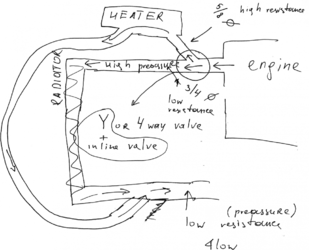 HEATER
5/8 ø high resistance
high pressure
engine
RADIATOR
3/4 ø
low
resistance
Y or 4 way valve
+
inline valve
(prepassure)
low
resistance
flow